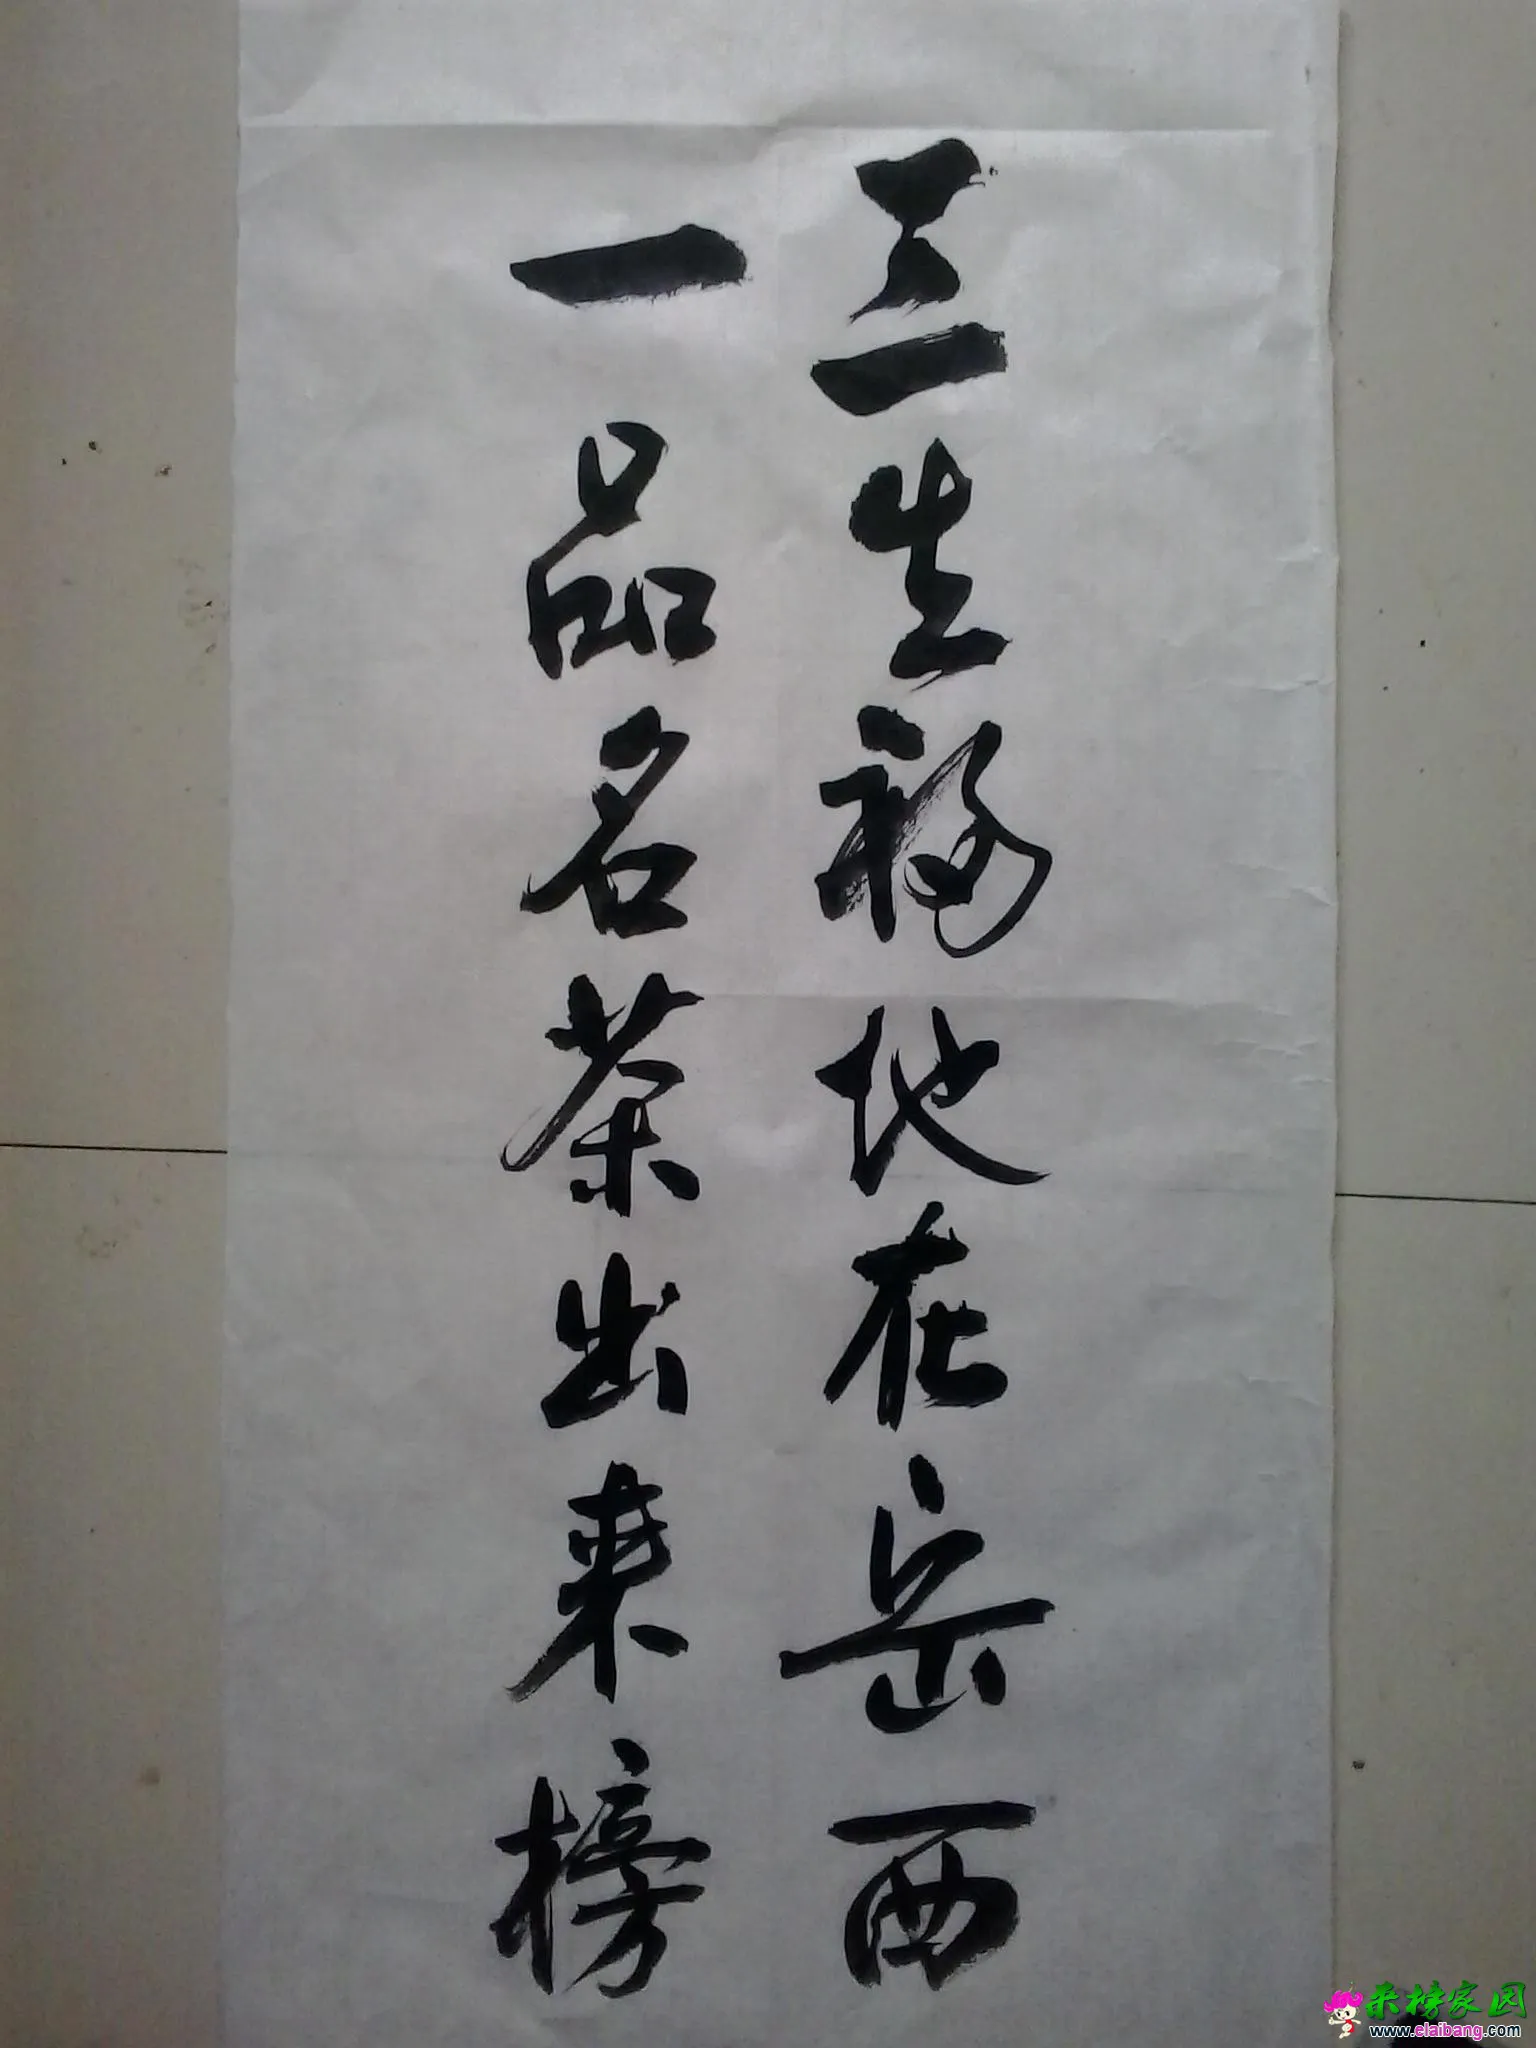 三生福地在岳西
一品名茶出来榜
来榜家园
www.elaibang.com